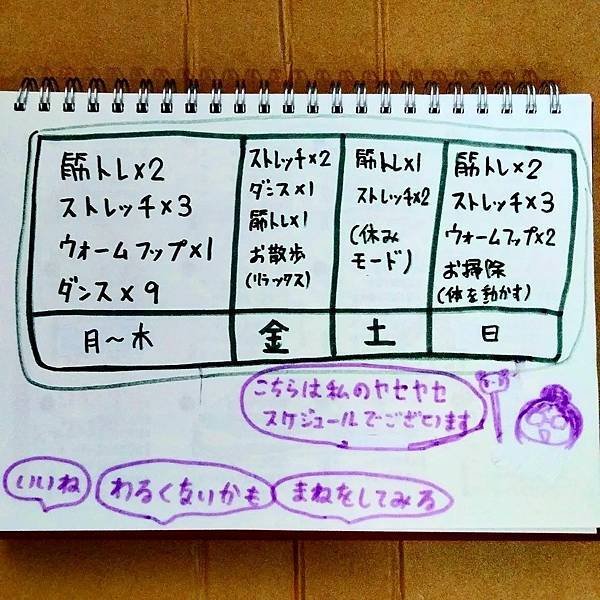 筋トレ×2
ストレッチ×3
ウォームフップ×1
ダンス×9
月〜木
ストレッチ×2
ダンス×1
筋トレ×1
お散歩
(リラックス)
金
筋トレ×1
ストレッチ×2
(休み
モード)
土
筋トレ×2
ストレッチ×3
ウォームフップ×2
お掃除
(体を動かす)
日
こちらは私のヤセヤセ
スケジュールでございます
いいね
わるくないかも
まねをしてみる